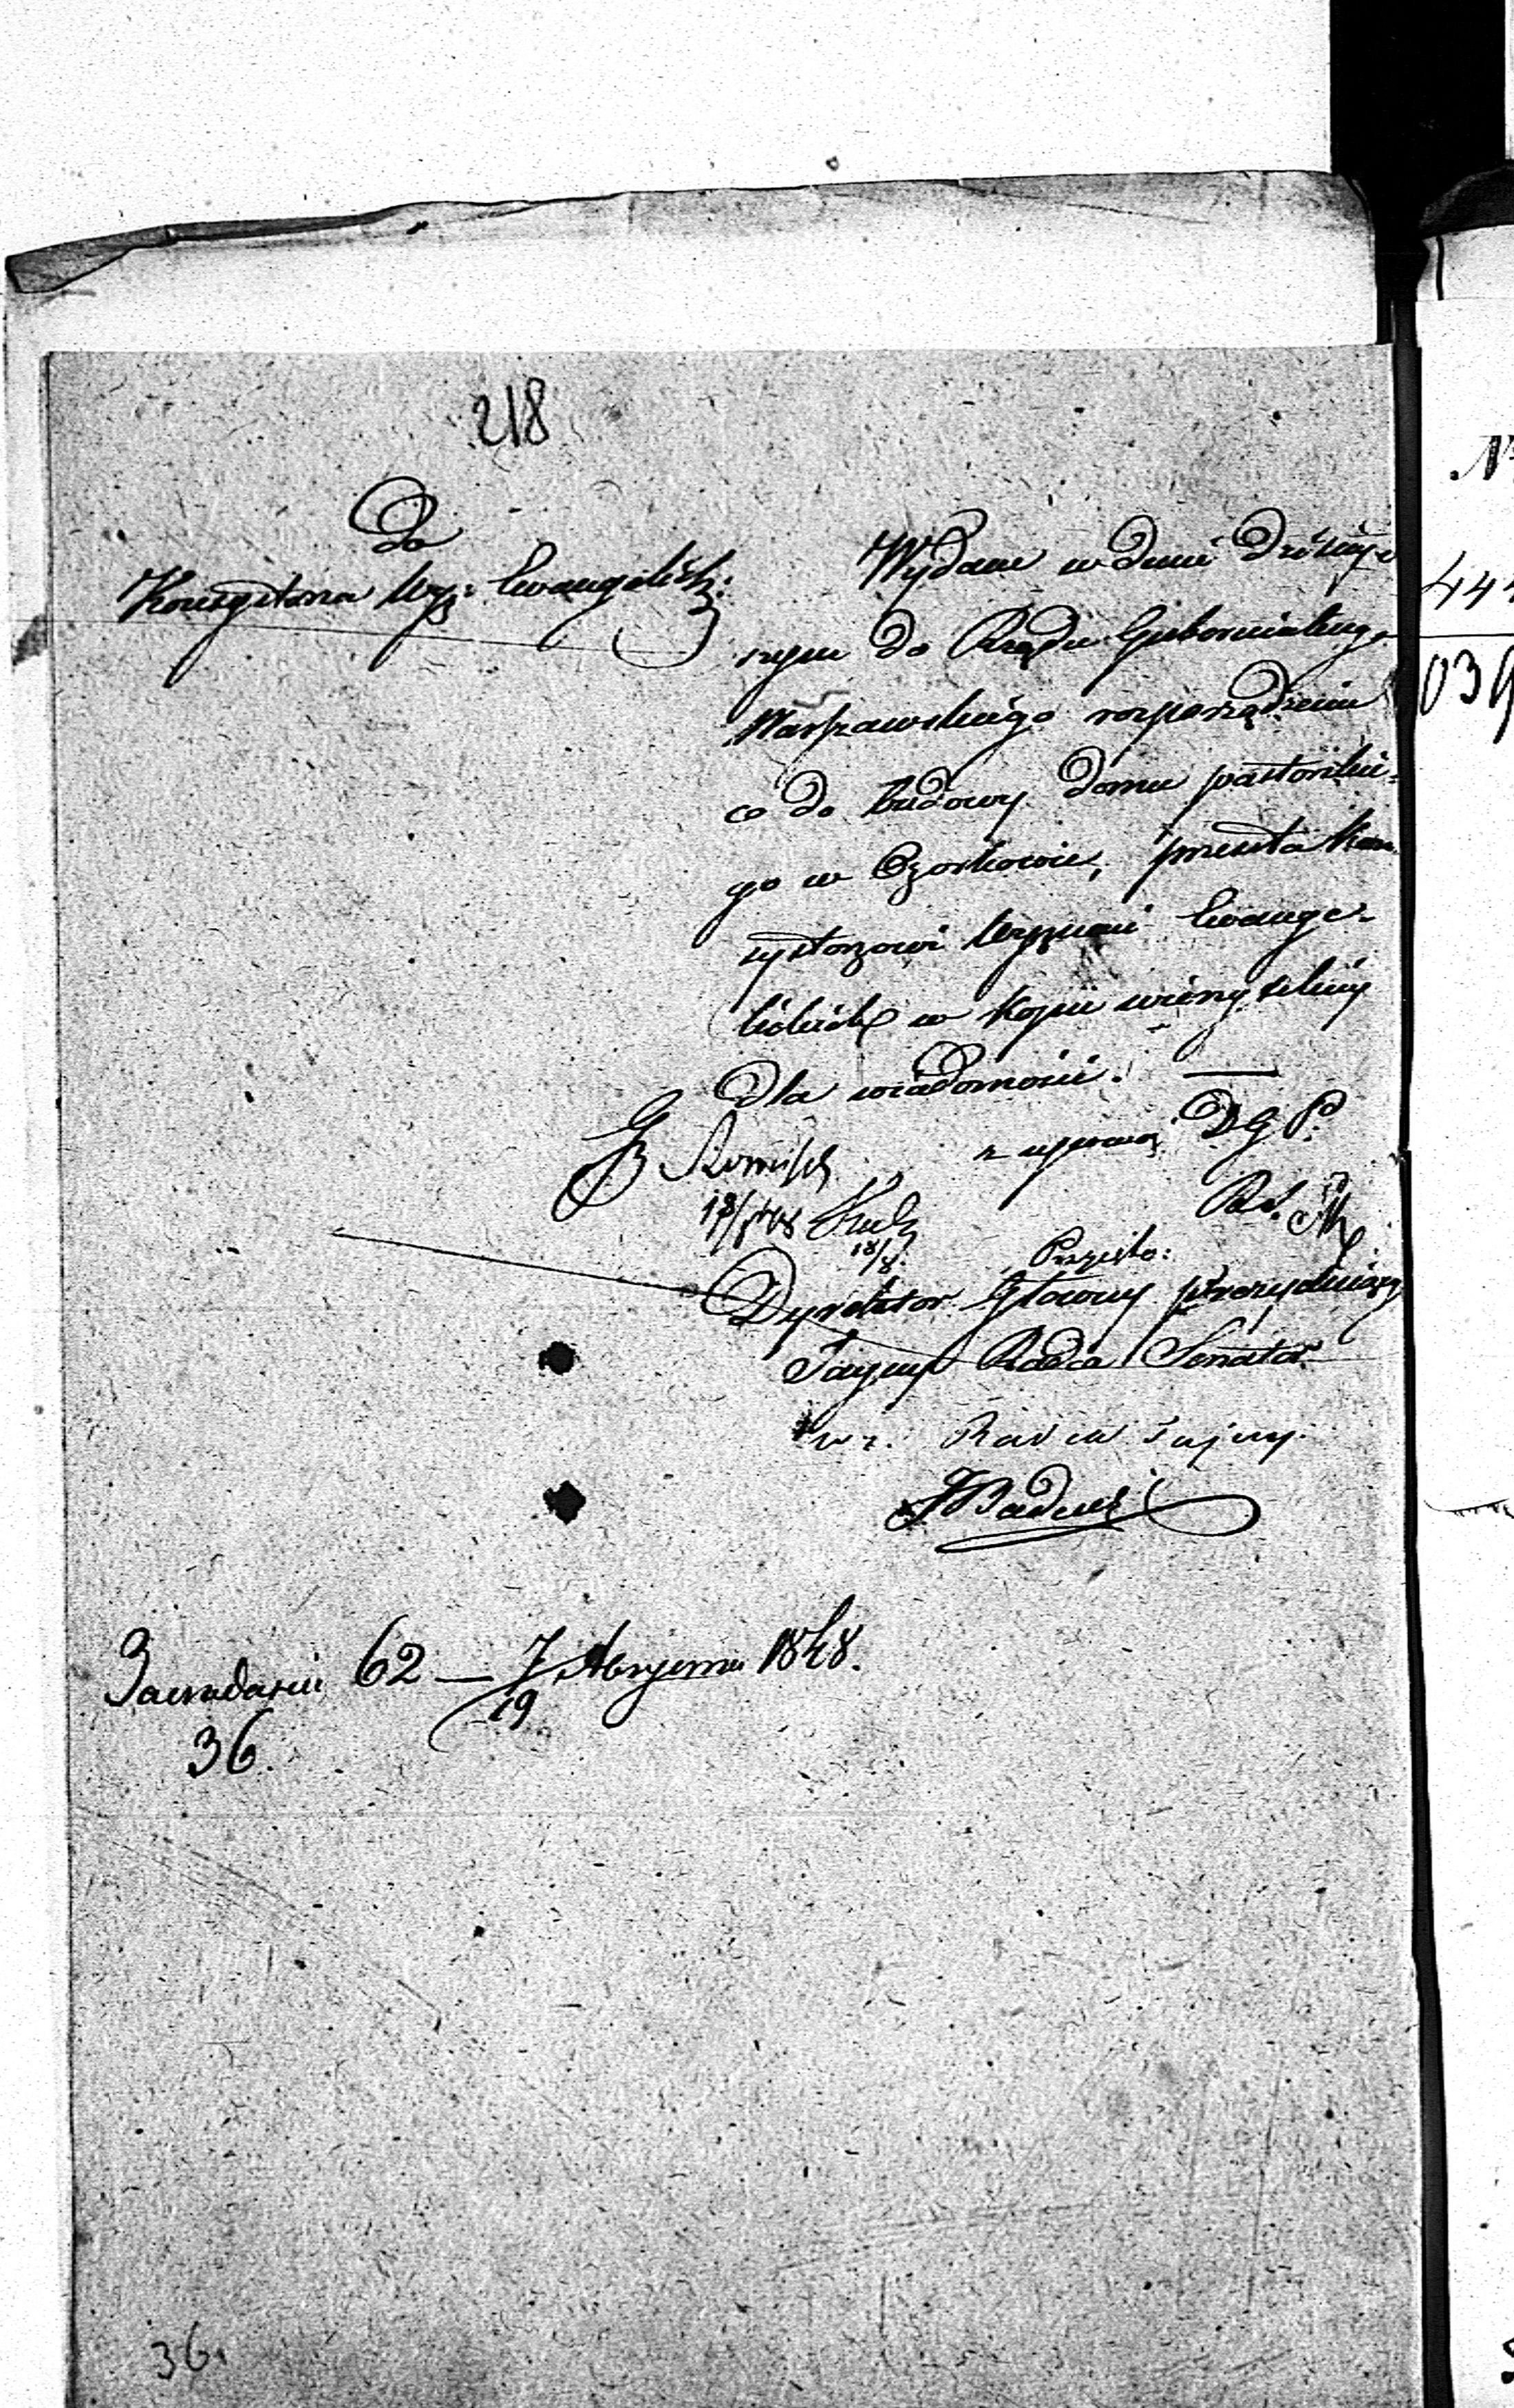 218
Do
Konsystorza Wyz: Ewangelick:
Wydane w dniu dzisiej-
szym do Rządu Gubernialnego
Warszawskiego rozporządzenie
co do budowy domu pastorskie-
go w Ozorkowie, przesyła Kon-
systorzowi Wyznań Ewange-
lickich w kopii wierzytelnej
dla wiadomości. —
z upoważ D G P.
18/8 48
18/8.
Przejsto:
Dyrektor Główny Prezydujący
Tajny Radca Senator
w z. Radca Tajny
62 — 7/19 1848.
36.
36.